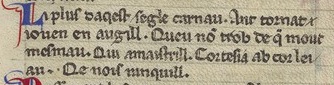 La plus daqest segle carnau. Ant tornat
iouen en auzill. Queu nō trob de q̄ mout
mesmau. Qui amaistrill. Cortesia ab cor lei
au. De nois ninquill.